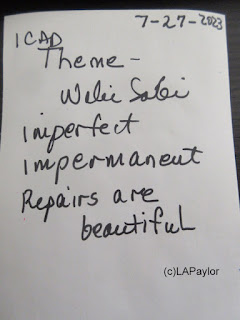 7-27-2023
ICAD
Theme -
Wabi Sabi
imperfect
impermanent
Repairs are
beautiful
(c)LAPaylor